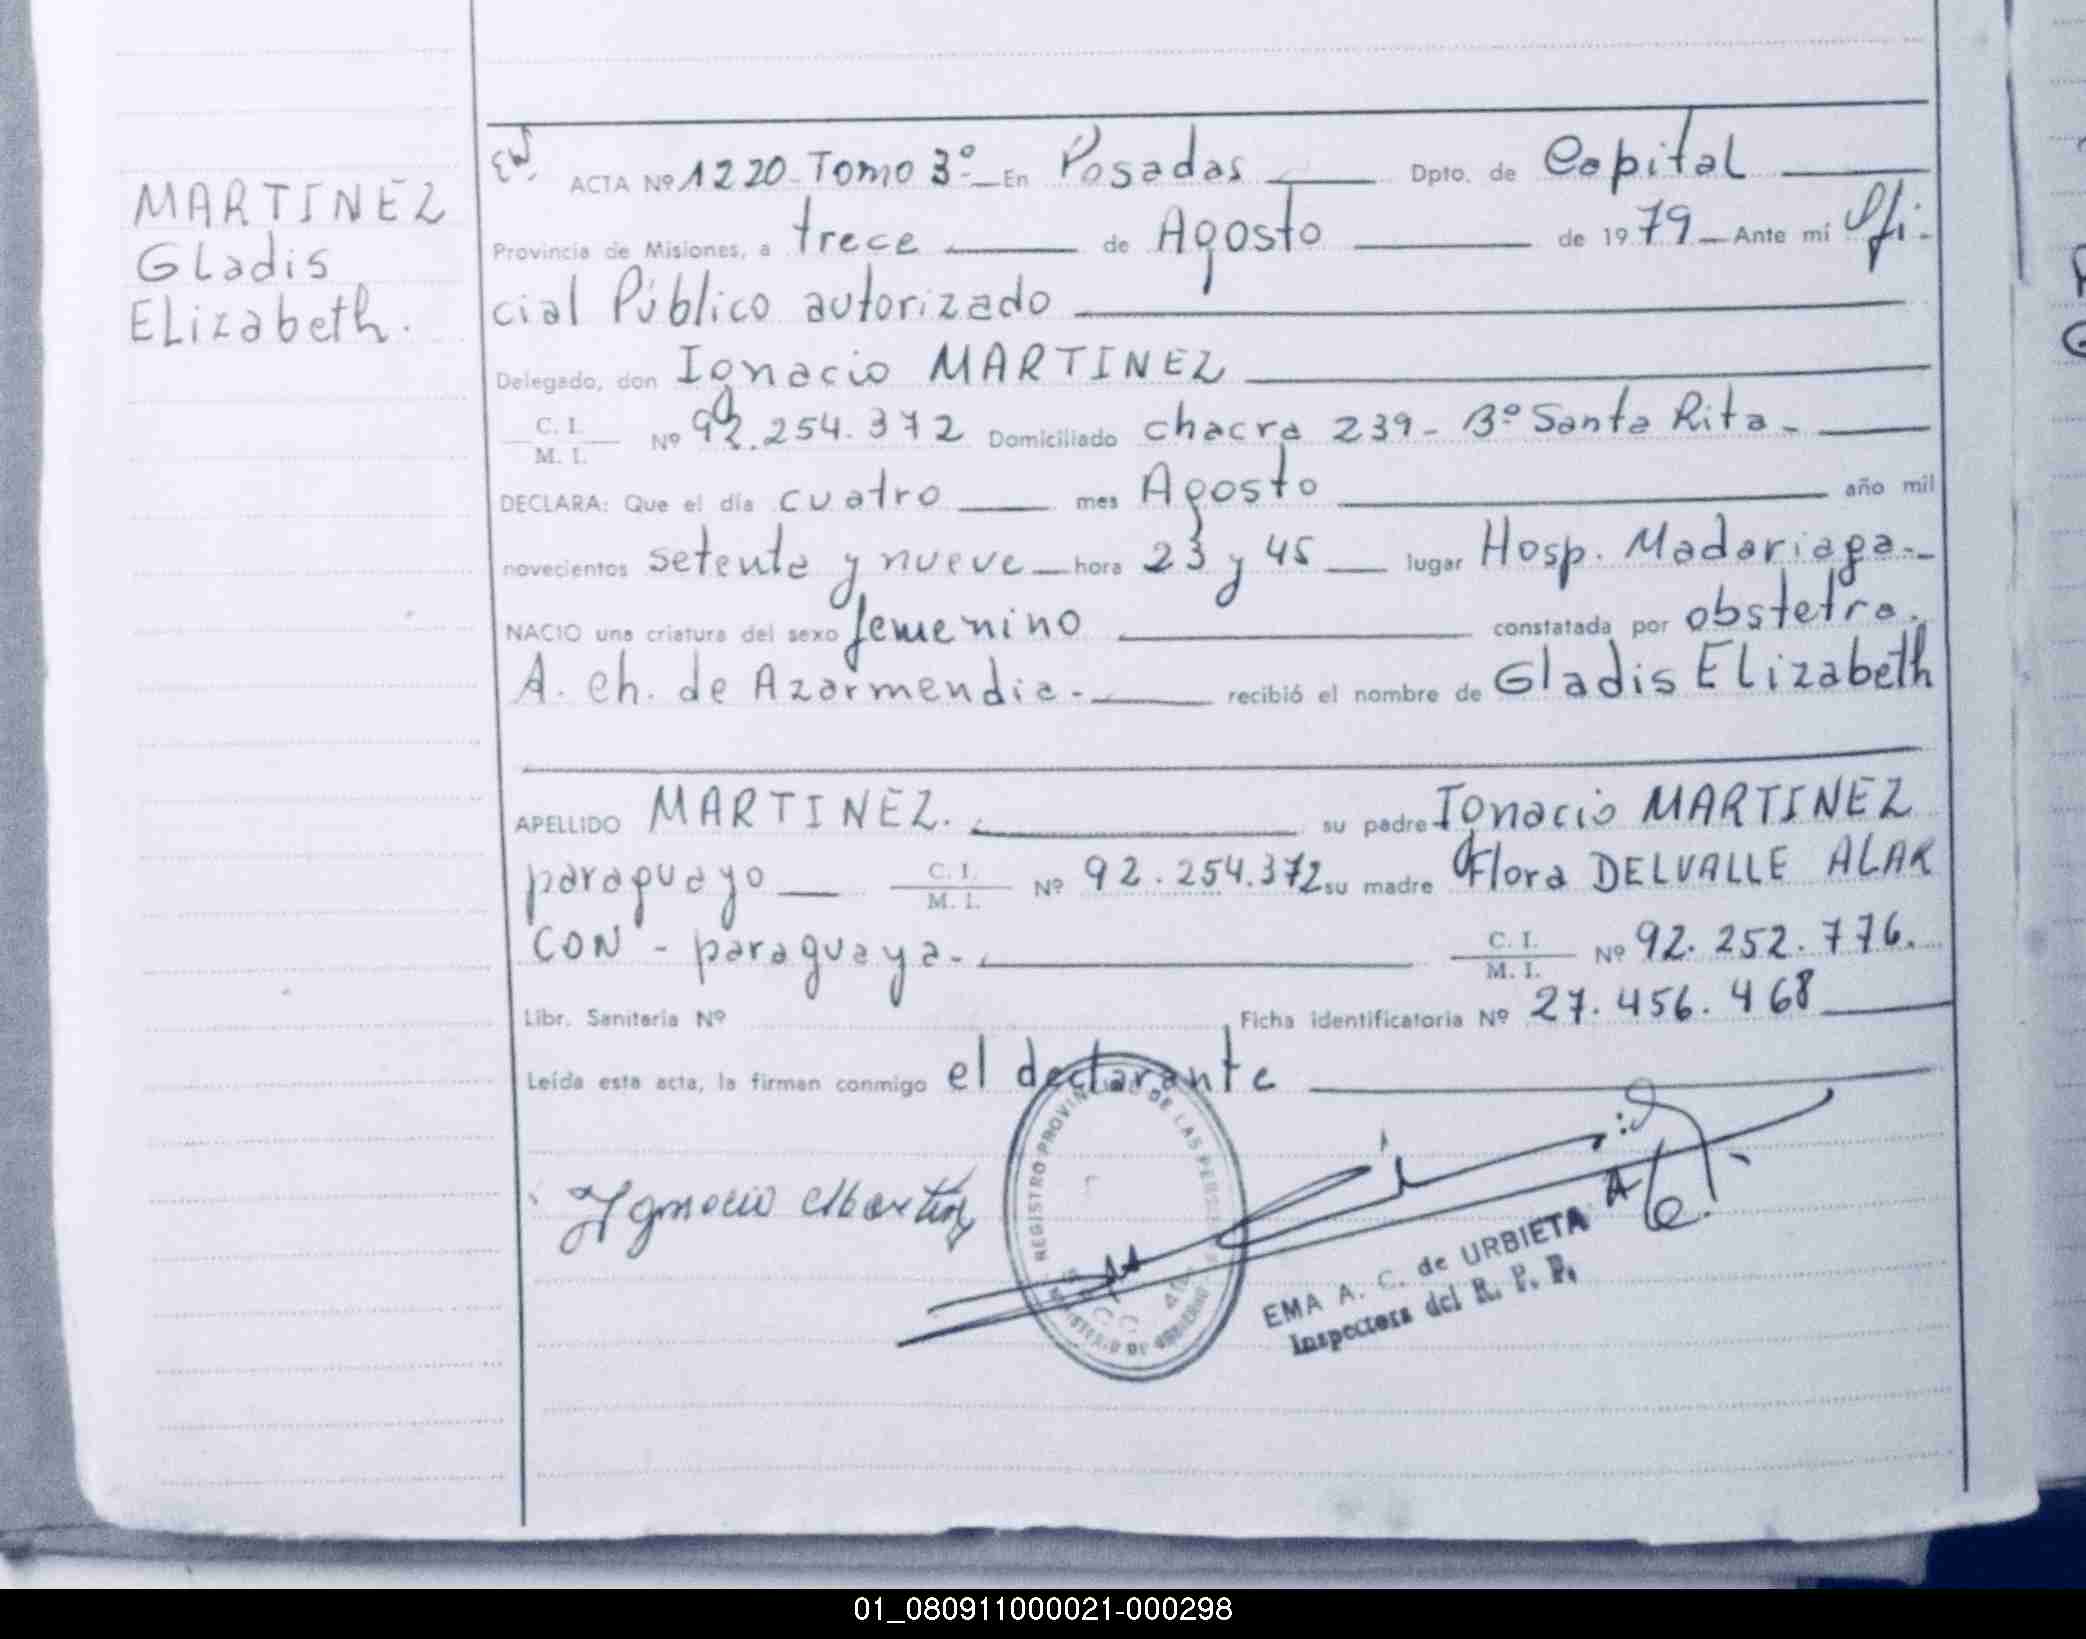 MARTINEZ
Gladis
ELizabeth.
ACTA Nº 1220 - Tomo 3º - En Posadas Dpto. de Capital
Provincia de Misiones, a trece de Agosto de 1979 - Ante mí Ofi-
cial Público autorizado
Delegado, don Ignacio MARTINEZ
C. I.
M. I. Nº 92.254.372 Domiciliado chacra 239 - Bº Santa Rita -
DECLARA: Que el día cuatro mes Agosto año mil
novecientos setenta y nueve hora 23 y 45 lugar Hosp. Madariaga -
NACIO una criatura del sexo femenino constatada por obstetra.
A. Ch. de Azarmendia - recibió el nombre de Gladis ELizabeth
APELLIDO MARTINEZ. su padre Ignacio MARTINEZ
paraguayo C. I.
M. I. Nº 92.254.372 su madre Flora DELVALLE ALAR
CON - paraguaya - C. I.
M. I. Nº 92.252.776.
Libr. Sanitaria Nº Ficha identificatoria Nº 27.456.468
Leída esta acta, la firman conmigo el declarante
REGISTRO PROVINCIAL DE LAS PERSONAS
Ignacio Martinez
EMA A. C. de URBIETA
Inspectora del R. P. P.
01_080911000021-000298